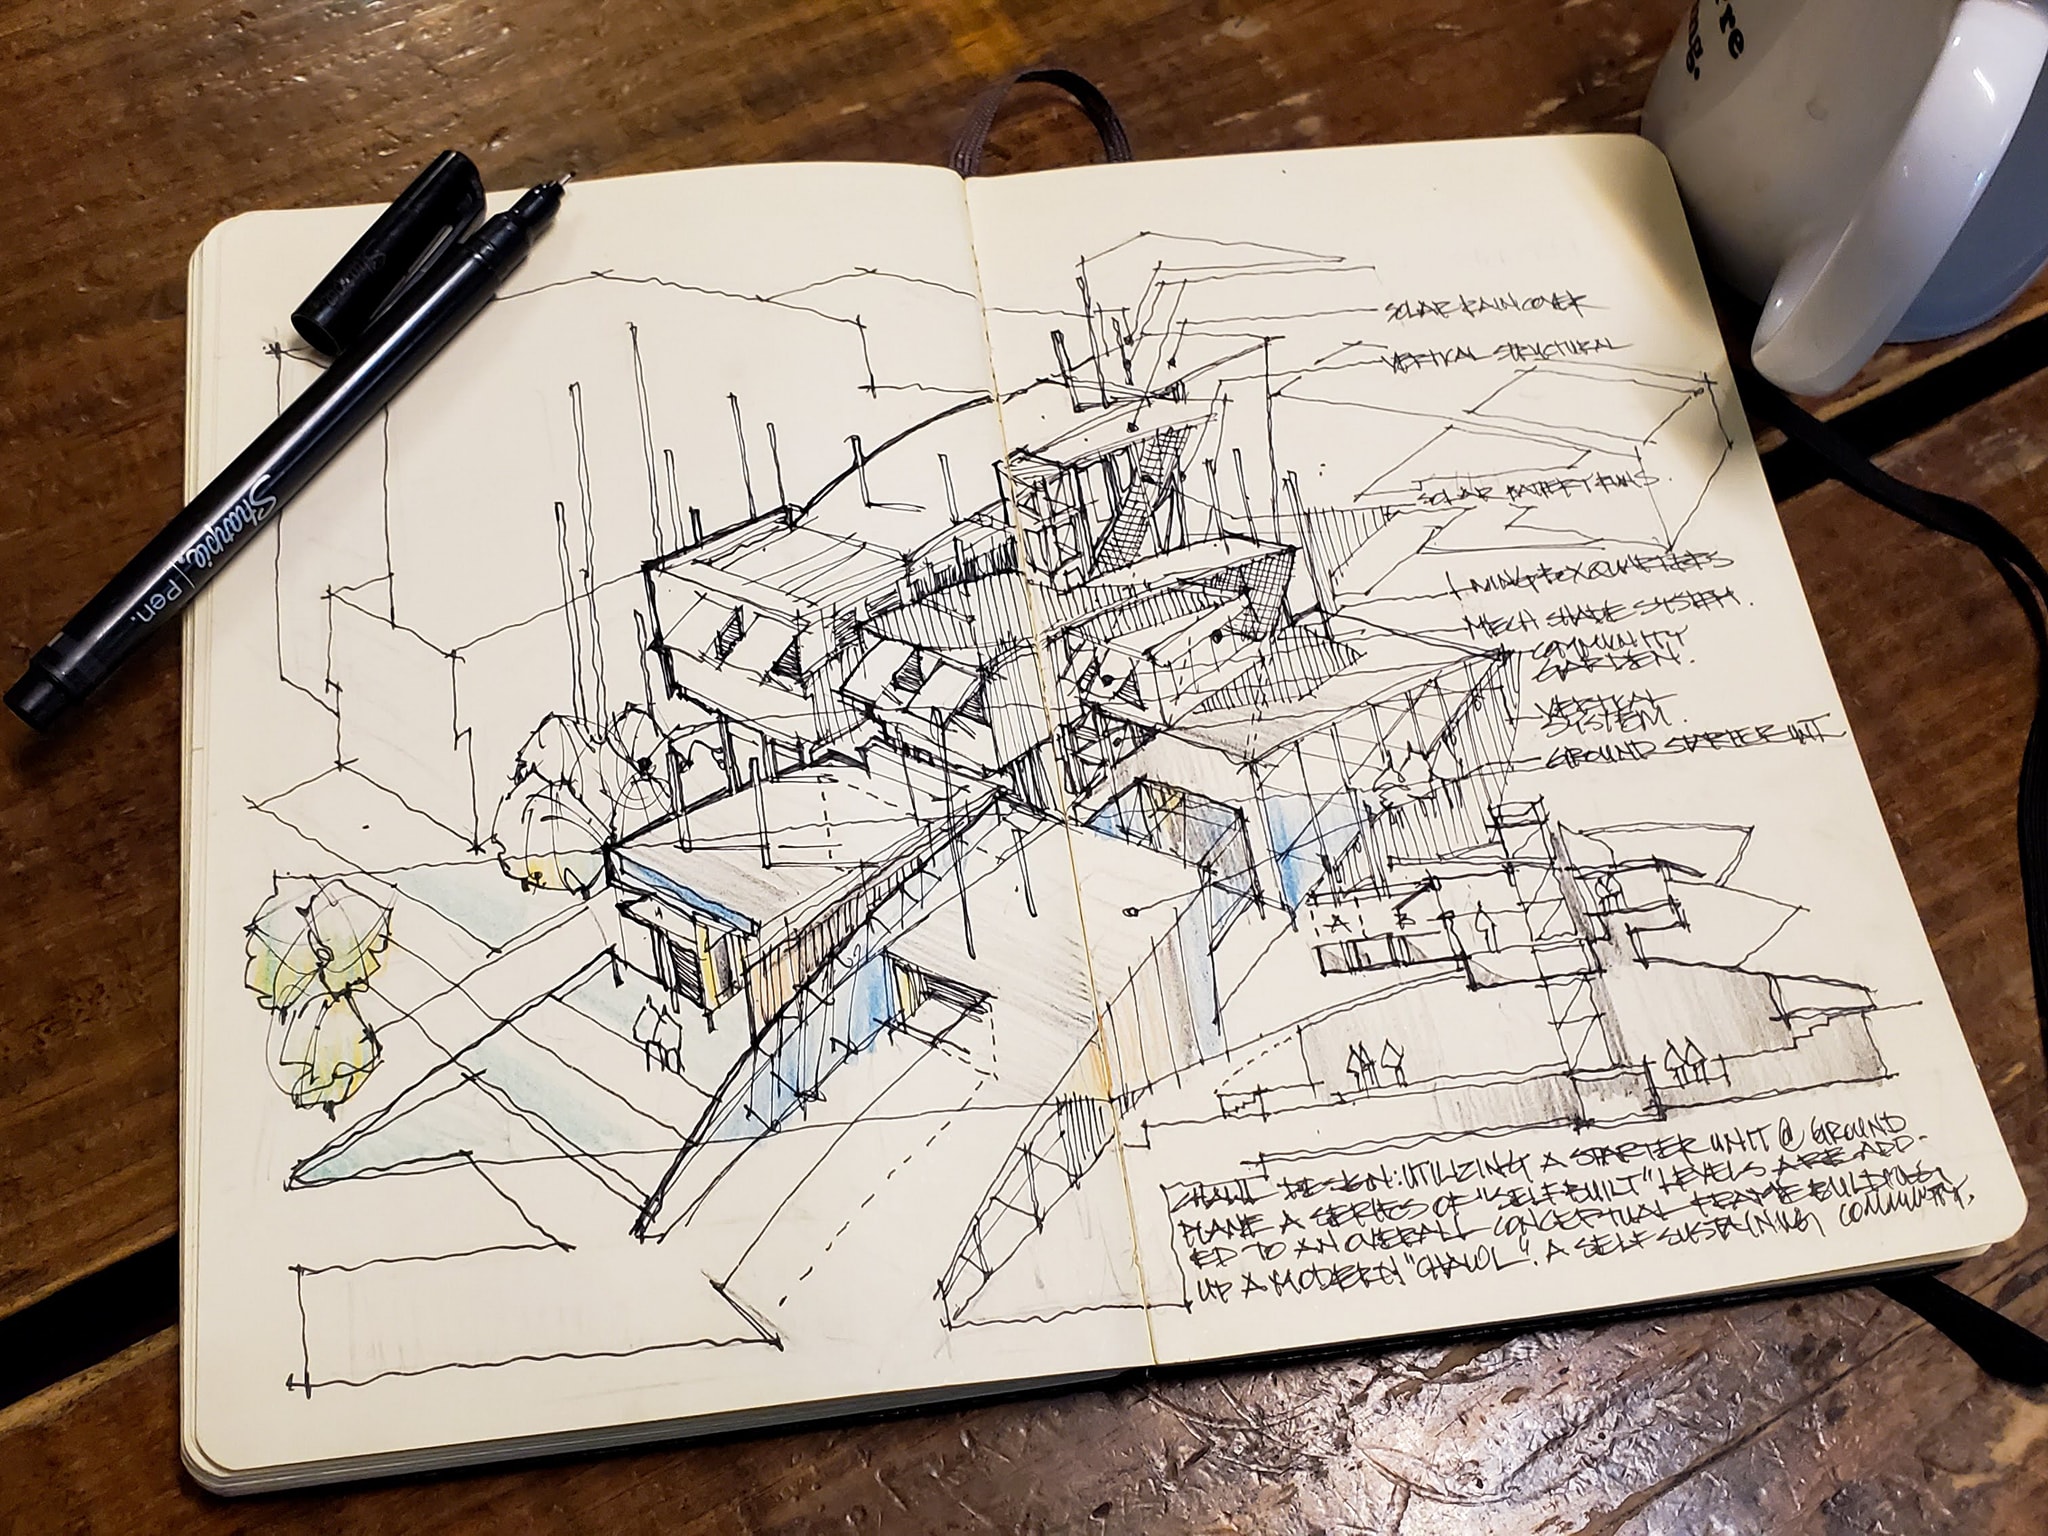 Sharpie. | Pen.
re
ng.
SOLAR RAIN COVER
VERTICAL STRUCTURAL
SOLAR BATTERY RUNS.
LIVING BOX QUARTERS
MECH SHADE SYSTEM.
COMMUNITY
GARDEN.
VERTICAL
SYSTEM.
GROUND STARTER UNIT
A
B
CHAWL DESIGN: UTILIZING A STARTER UNIT @ GROUND
PLANE A SERIES OF "SELF BUILT" LEVELS ARE ADD-
ED TO AN OVERALL CONCEPTUAL FRAME BUILDING
UP A MODERN "CHAWL". A SELF SUSTAINING COMMUNITY.